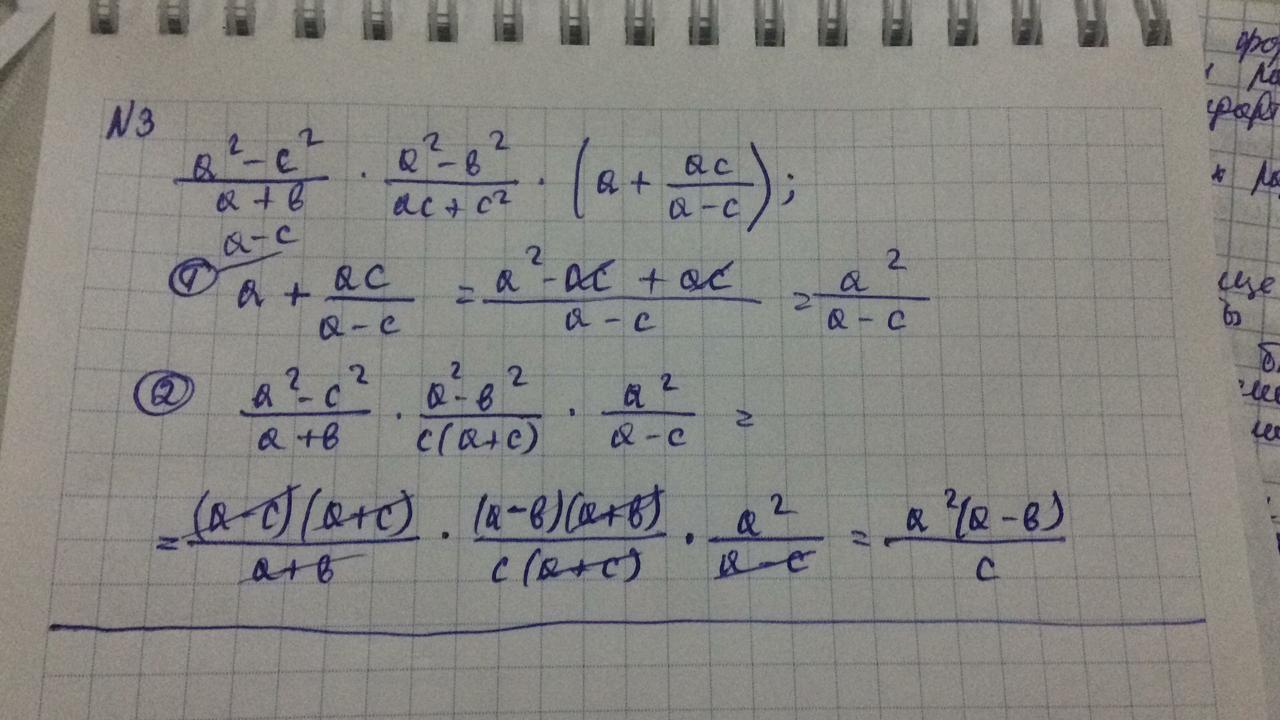 N3
(a² - c²)/(a + в) · (a² - в²)/(ac + c²) · (a + ac/(a - c));
① a - c
a + ac/(a - c) = (a² - ac + ac)/(a - c) = a²/(a - c)
② (a² - c²)/(a + в) · (a² - в²)/(c(a + c)) · a²/(a - c) =
= (a - c)(a + c)/(a + в) · (a - в)(a + в)/(c(a + c)) · a²/(a - c) = a²(a - в)/c